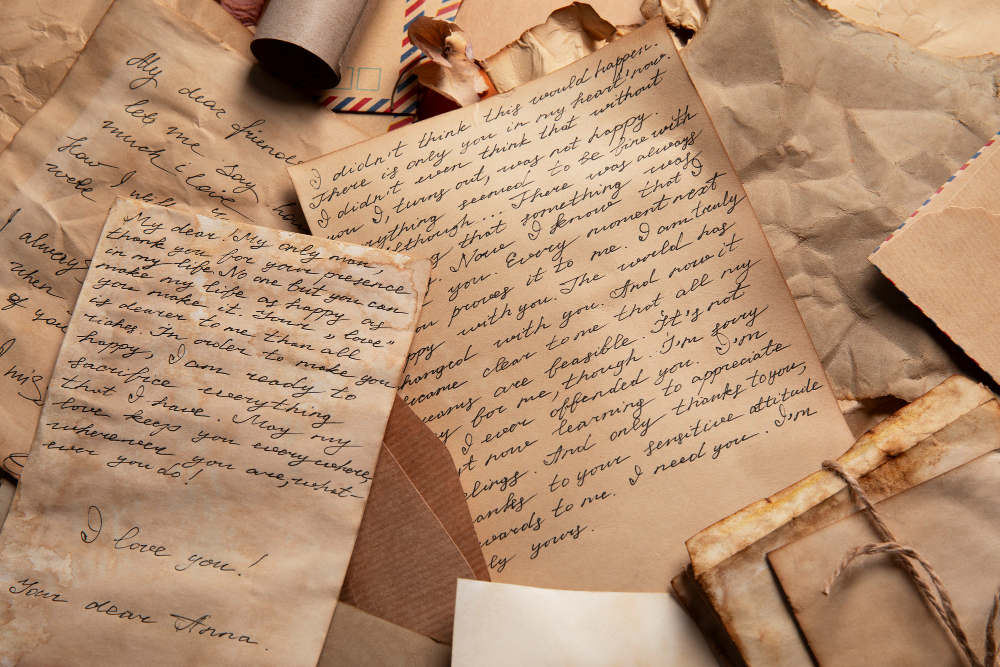 My
dear friend
let me say
much i love
How I will
were
I always
when
of you
his
My dear! My only man,
thank you for your presence
in my life. No one but you can
make my life as happy as
you make it. Your „love"
is dearer to me than all
riches. In order to make you
happy, I am ready to
sacrifice everything
that I have. May my
love keeps you everywhere,
wherever you are, what-
ever you do!
I love you!
Your dear Anna.
I didn't think this would happen.
There is only you in my heart now.
I didn't even think that without
you I, turns out, was not happy.
rything seemed to be fine with
lthough... There was always
g that something was
. Now I know that I
you. Every moment next
ou proves it to me. I am truly
ppy with you. The world has
hanged with you. And now it
ecame clear to me that all my
eams are feasible. It's not
y for me, though. I'm sorry
I ever offended you. I'm
t now learning to appreciate
elings. And only thanks to you,
anks to your sensitive attitude
wards to me. I need you. I'm
ly yours.